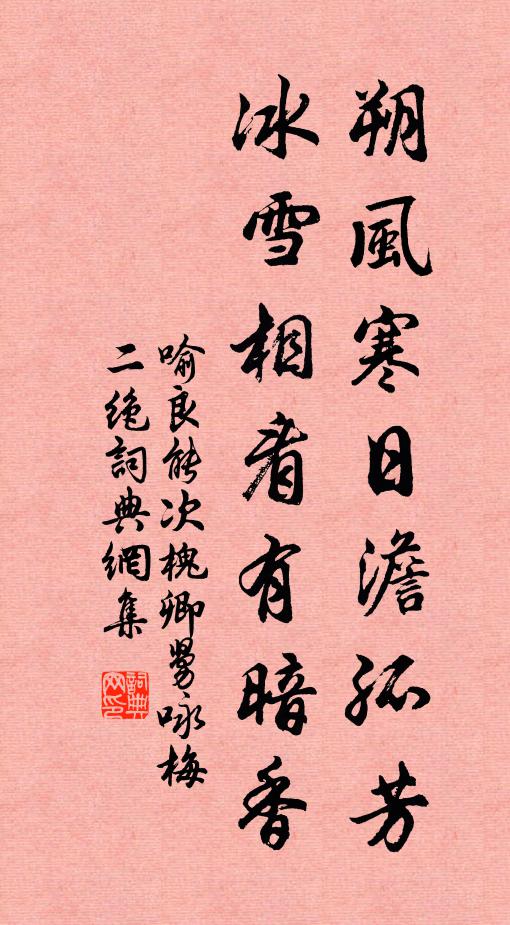 朔風寒日澹孤芳
冰雪相看有暗香
喻良能次槐卿舅咏梅
二絕詞典網集
詞典
网印